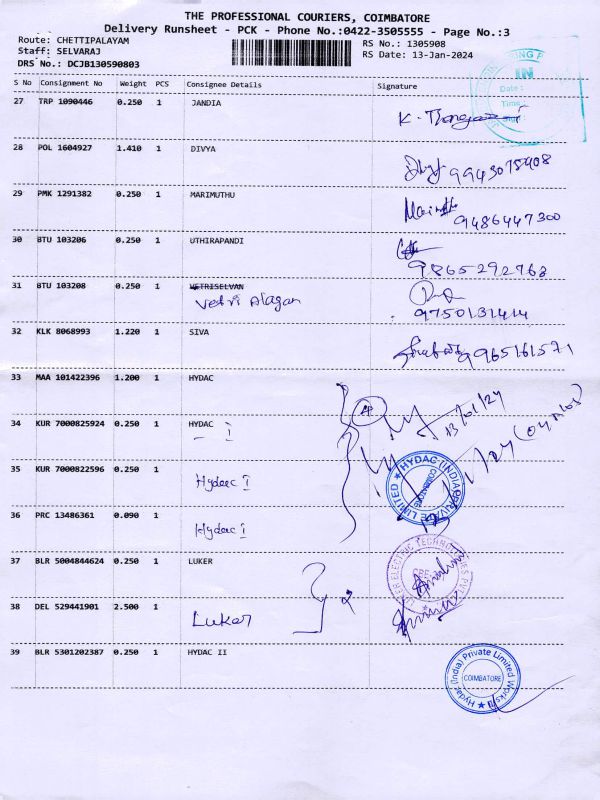 THE PROFESSIONAL COURIERS, COIMBATORE
Delivery Runsheet - PCK - Phone No.:0422-3505555 - Page No.:3
Route: CHETTIPALAYAM
Staff: SELVARAJ
DRS No.: DCJB130590803
RS No.: 1305908
RS Date: 13-Jan-2024
S No Consignment No Weight PCS Consignee Details Signature
IN
Date:
Time:
27 TRP 1090446 0.250 1 JANDIA
28 POL 1604927 1.410 1 DIVYA
9943075908
29 PMK 1291382 0.250 1 MARIMUTHU
9486447300
30 BTU 103206 0.250 1 UTHIRAPANDI
9865292762
31 BTU 103208 0.250 1 VETRISELVAN
Vetri Alagan
9750131414
32 KLK 8068993 1.220 1 SIVA
9965161571
33 MAA 101422396 1.200 1 HYDAC
13/01/24
34 KUR 7000825924 0.250 1 HYDAC
I
35 KUR 7000822596 0.250 1
Hydac I
HYDAC (INDIA) PRIVATE LIMITED
COIMBATORE
36 PRC 13486361 0.090 1
Hydac I
37 BLR 5004844624 0.250 1 LUKER
LUKER ELECTRIC TECHNOLOGIES PVT
38 DEL 529441901 2.500 1
Luker
39 BLR 5301202387 0.250 1 HYDAC II
Hydac (India) Private Limited Works
COIMBATORE